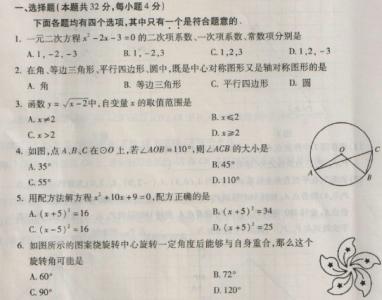 一、选择题(本题共32分,每小题4分)
下面各题均有四个选项,其中只有一个是符合题意的.
1. 一元二次方程 x²-2x-3=0 的二次项系数、一次项系数、常数项分别是
A. 1,-2,-3 B. 1,-2,3 C. 1,2,3 D. 1,2,-3
2. 在角、等边三角形、平行四边形、圆中,既是中心对称图形又是轴对称图形的是
A. 角 B. 等边三角形 C. 平行四边形 D. 圆
3. 函数 y=√x-2中,自变量 x 的取值范围是
A. x≠2 B. x≤2
C. x>2 D. x≥2
4. 如图,点 A、B、C 在⊙O 上,若∠AOB=110°,则∠ACB 的大小是
A. 35° B. 45°
C. 55° D. 110°
O
C
A
B
5. 用配方法解方程 x²+10x+9=0,配方正确的是
A. (x+5)²=16 B. (x+5)²=34
C. (x-5)²=16 D. (x+5)²=25
6. 如图所示的图案绕旋转中心旋转一定角度后能够与自身重合,那么这个
旋转角可能是
A. 60° B. 72°
C. 90° D. 120°